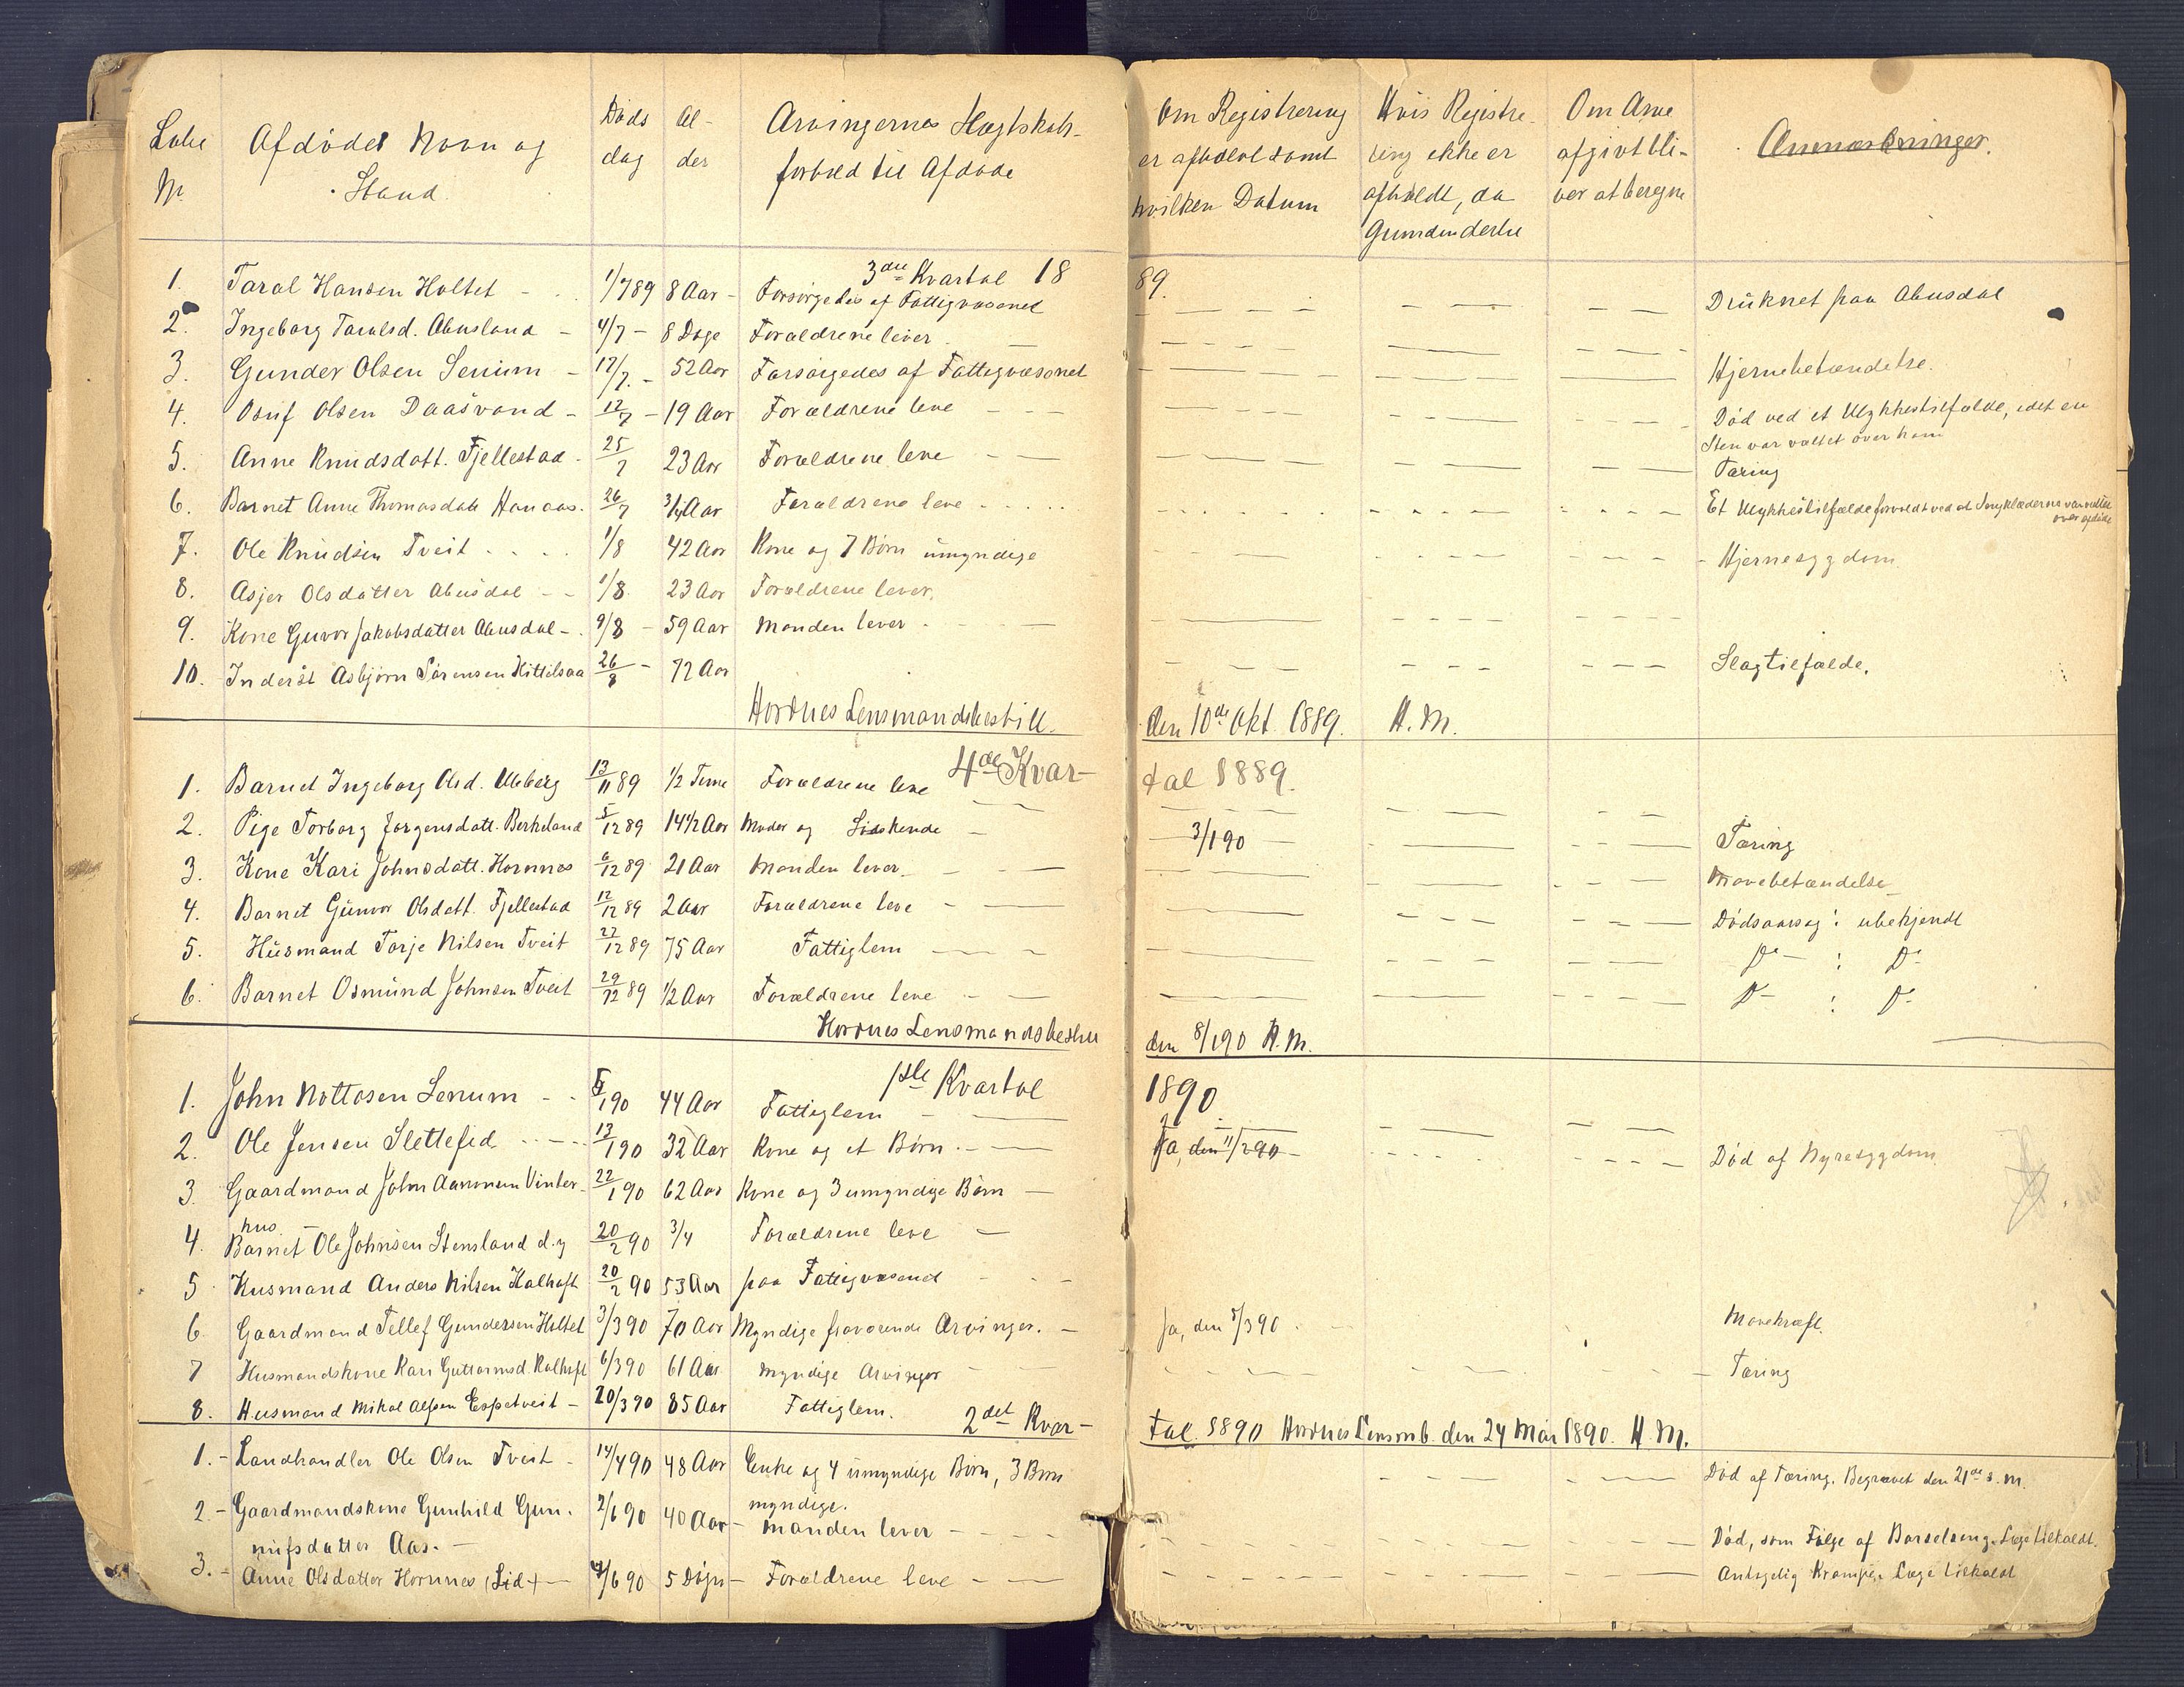 Løbe Afdødes Navn og Døds Al- Arvingernes Slægtskabs- Om Registrering Hvis Registre- Om Arve Anmærkninger.
Nr. Stand. dag der forhold til Afdøde er afholdt samt ring ikke er afgivt bli-
hvilken Datum afholdt, da ver at beregne
Grunden dertil
3die Kvartal 1889.
1. Taral Hansen Holtet 1/789 8 Aar Forsørgedes af Fattigvæsenet Drüknet paa Abusdal
2. Ingeborg Taralsd. Abusland 4/7 8 Dage Forældrene lever
3. Gunder Olsen Senum 17/7 52 Aar Forsørgedes af Fattigvæsenet Hjernebetændelse.
4. Osuf Olsen Daasvand 12/7 19 Aar Forældrene leve Død ved et Ulykkestilfælde, idet en
Sten var væltet over ham
5. Anne Knudsdatt. Fjellestad 25/7 23 Aar Forældrene leve Tæring
6. Barnet Anne Thomasdatt Honaas. 26/7 3/4 Aar Forældrene leve Et Ulykkestilfælde forvoldt ved at
over afdøde
7. Ole Knudsen Tveit 1/8 42 Aar Kone og 7 Børn umyndige Hjernesygdom
8. Asjer Olsdatter Abusdal 1/8 23 Aar Forældrene lever.
9. Kone Guvor Jakobsdatter Abusdal 9/8 59 Aar Manden lever
10. Inderst Asbjørn Sørensen Kittilsaa 26/8 72 Aar Slagtilfælde.
Hornnes Lensmandsbestill. den 10de Okt. 1889. H. M.
4de Kvartal 1889.
1. Barnet Ingeborg Olsd. Uleberg 13/11 89 1/2 Time Forældrene leve
2. Pige Torborg Jørgensdatt. Berkeland 5/12 89 14 1/2 Aar Moder og Sødskende 3/1 90 Tæring
3. Kone Kari Johnsdatt. Hornnes 6/12 89 21 Aar Manden lever. Mavebetændelse
4. Barnet Gunvor Olsdatt. Fjellestad 12/12 89 2 Aar Forældrene leve Dødsaarsag: ubekjendt
5. Husmand Torje Nilsen Tveit 27/12 89 75 Aar Fattiglem Do : Do
6. Barnet Osmund Johnsen Tveit 29/12 89 1/2 Aar Forældrene leve Do : Do
Hornnes Lensmandsbestill den 8/1 90 H. M.
1ste Kvartal 1890
1. John Nottosen Senum /1 90 44 Aar Fattiglem
2. Ole Jensen Slettefid 13/1 90 32 Aar Kone og et Børn. Ja, den 11/2 90 Død af Nyresygdom
3. Gaardmand John Aanonsen Vinter- 22/1 90 62 Aar Kone og 3 umyndige Børn
hus
4. Barnet Ole Johnsen Stensland d.y 20/2 90 3/4 Forældrene leve
5 Husmand Anders Nilsen Kalhoft 20/2 90 53 Aar paa Fattigvæsenet
6 Gaardmand Tellef Gundersen Holtet 3/3 90 70 Aar Myndige fraværende Arvinger. Ja, den 7/3 90 Mavekræft.
7 Husmandskone Kari Guttormsd. Kalhoft 6/3 90 61 Aar Myndige Arvinger Tæring
8. Husmand Mikal Alfsen Espetveit 20/3 90 85 Aar Fattiglem.
2det Kvartal 1890 Hornnes Lensmb. den 24 Mai 1890. H. M.
1. Landhandler Ole Olsen Tveit 14/4 90 48 Aar Enke og 4 umyndige Børn, 3 Børn Død af Tæring. Begravet den 21de s. m.
myndige.
2 Gaardmandskone Gunhild Gun- 2/6 90 40 Aar Manden lever Død, som Følge af Barselseng. Læge tilkaldt.
nufsdatter Aas.
3. Anne Olsdatter Hornnes (Lid) /6 90 5 Døgn Forældrene leve Antagelig Krampe. Læge tilkaldt